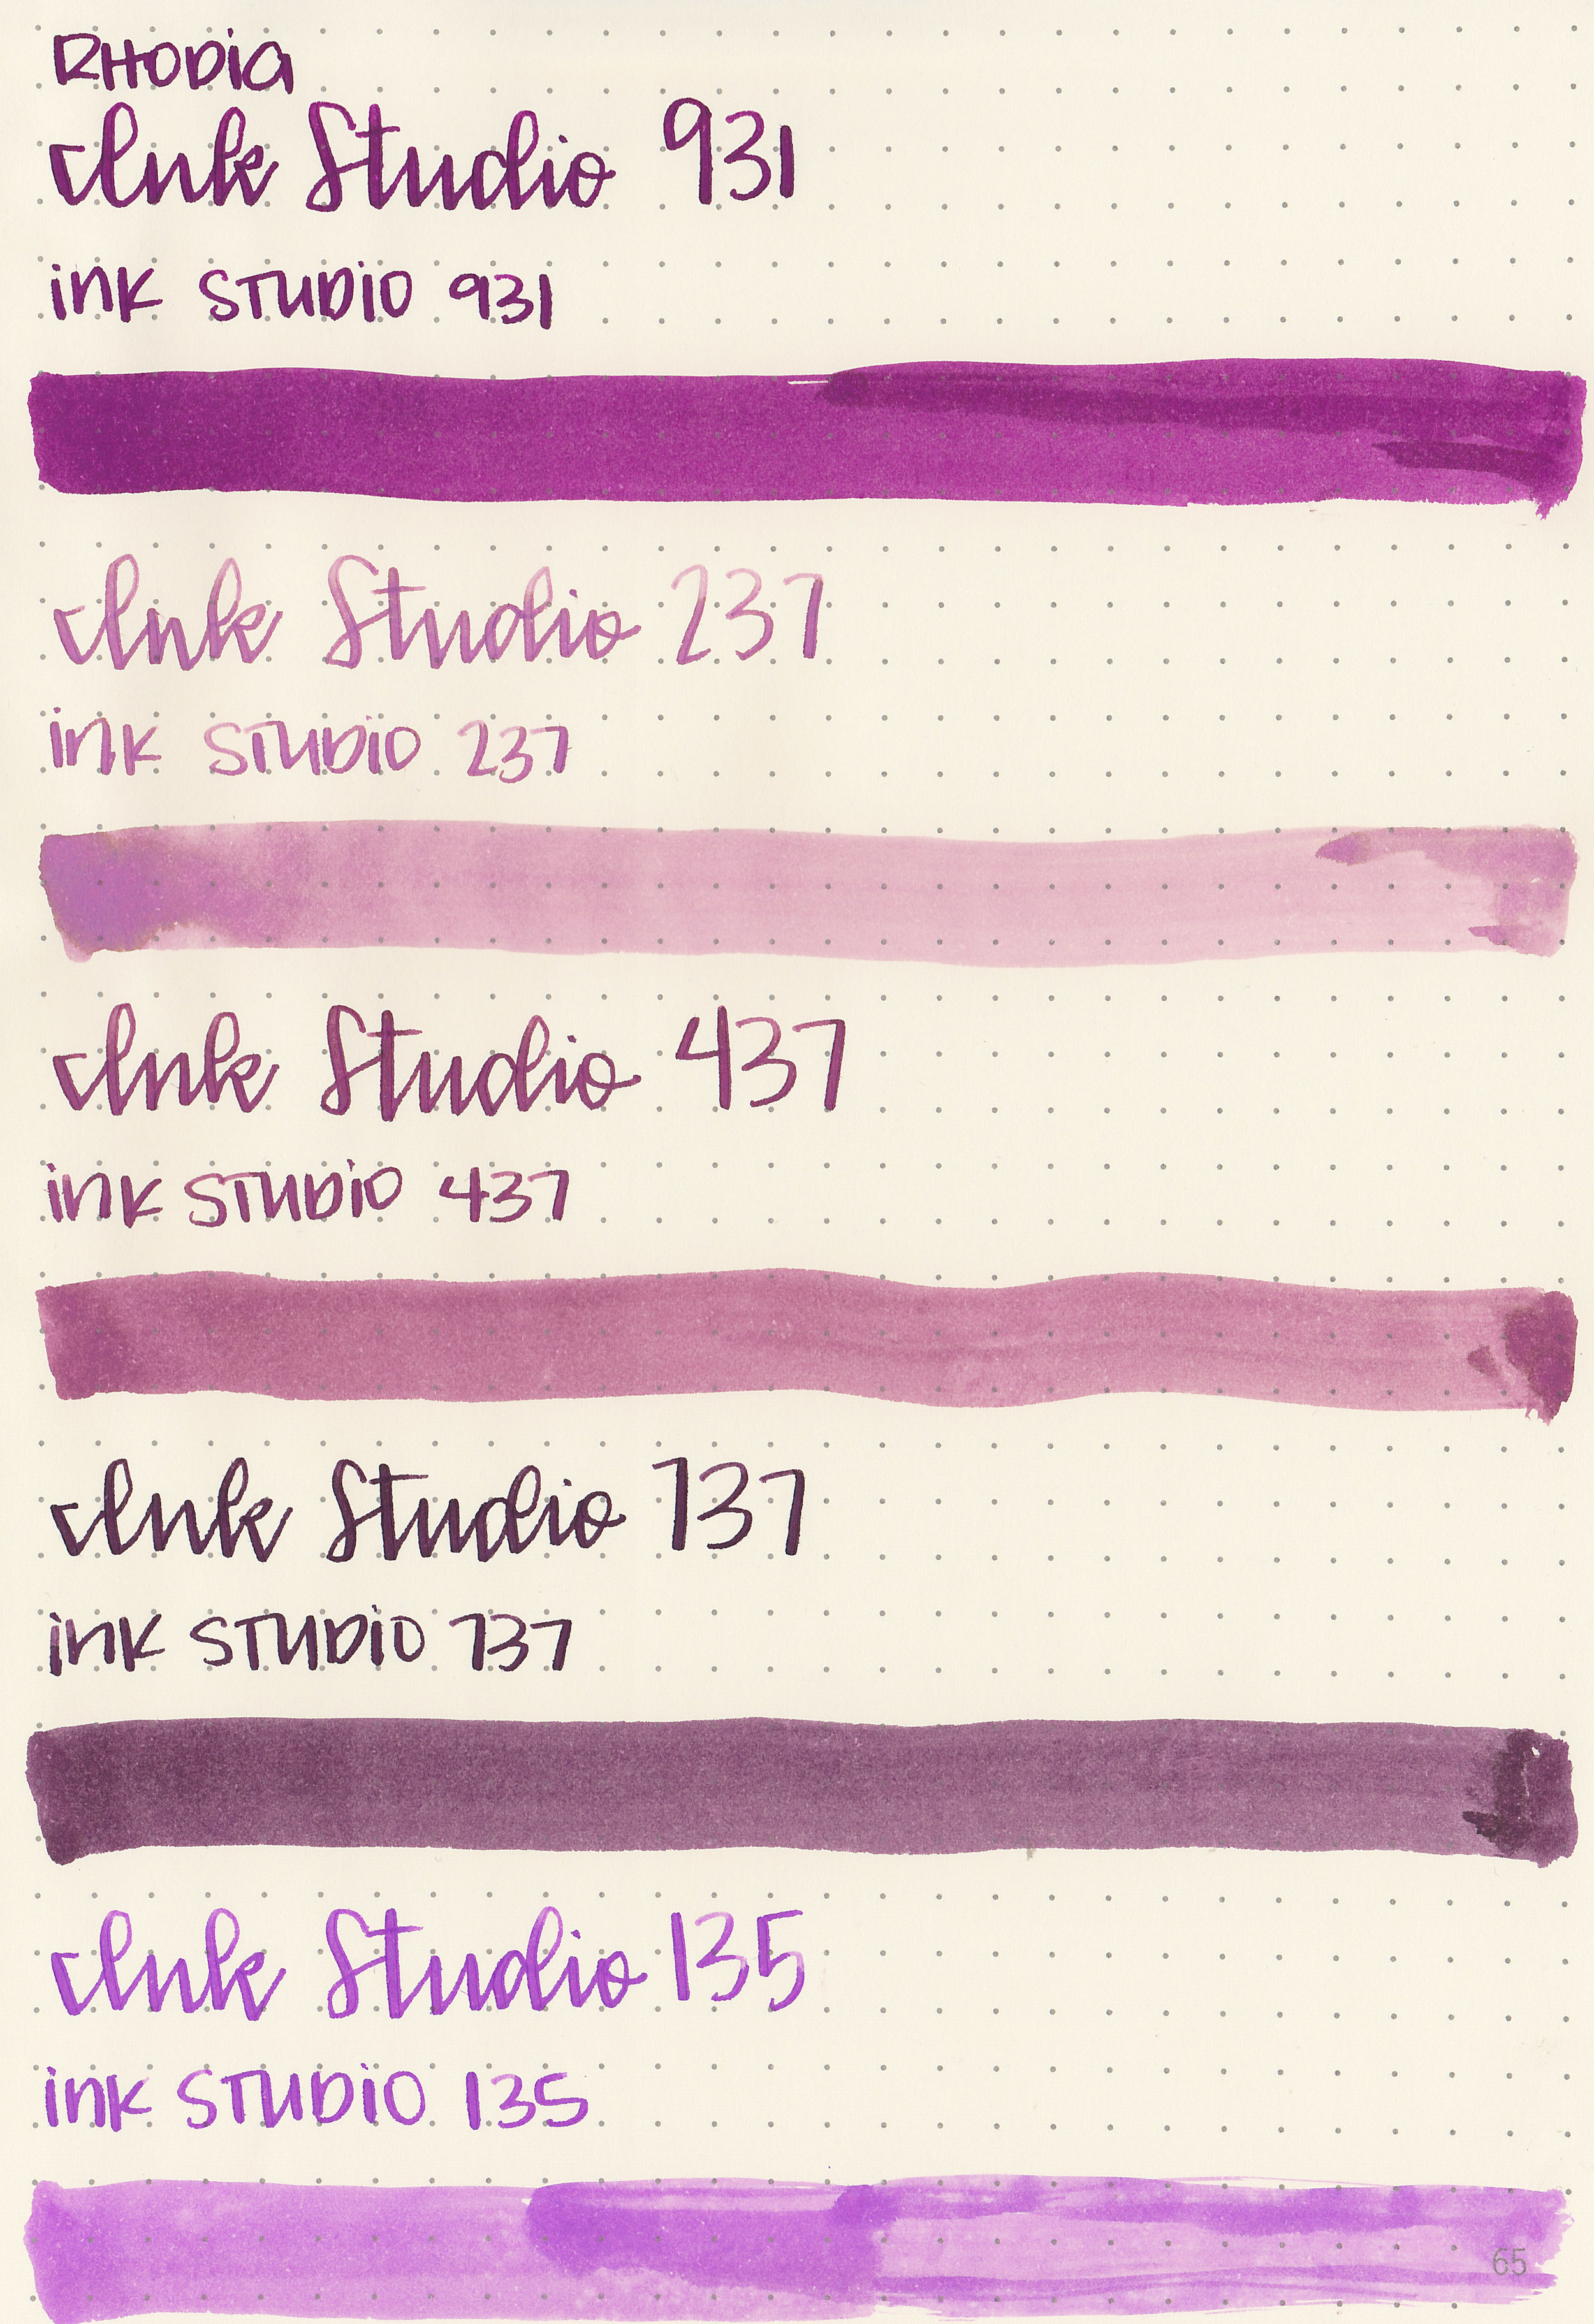 RHODiA
Ink Studio 931
iNK STUDiO 931
Ink Studio 237
iNK STUDiO 237
Ink Studio 437
iNK STUDiO 437
Ink Studio 737
iNK STUDiO 737
Ink Studio 135
iNK STUDiO 135
65